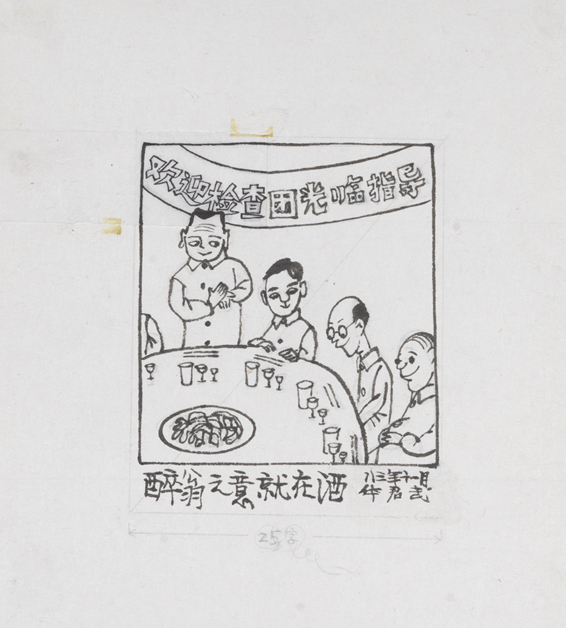 欢迎检查团光临指导
醉翁之意就在酒
八三年十一月
华君武
25字